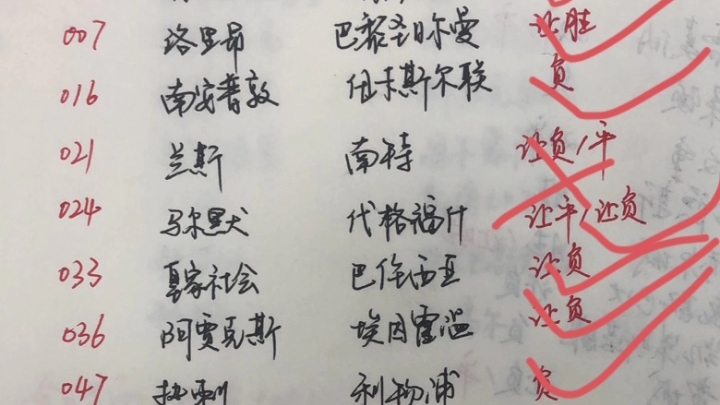 007 洛里昂 巴黎圣日尔曼 让胜
016 南安普敦 纽卡斯尔联 负
021 兰斯 南特 让负/平
024 马尔默 代格福什 让平/让负
033 皇家社会 巴伦西亚 让负
036 阿贾克斯 埃因霍温 让负
047 热刺 利物浦 负